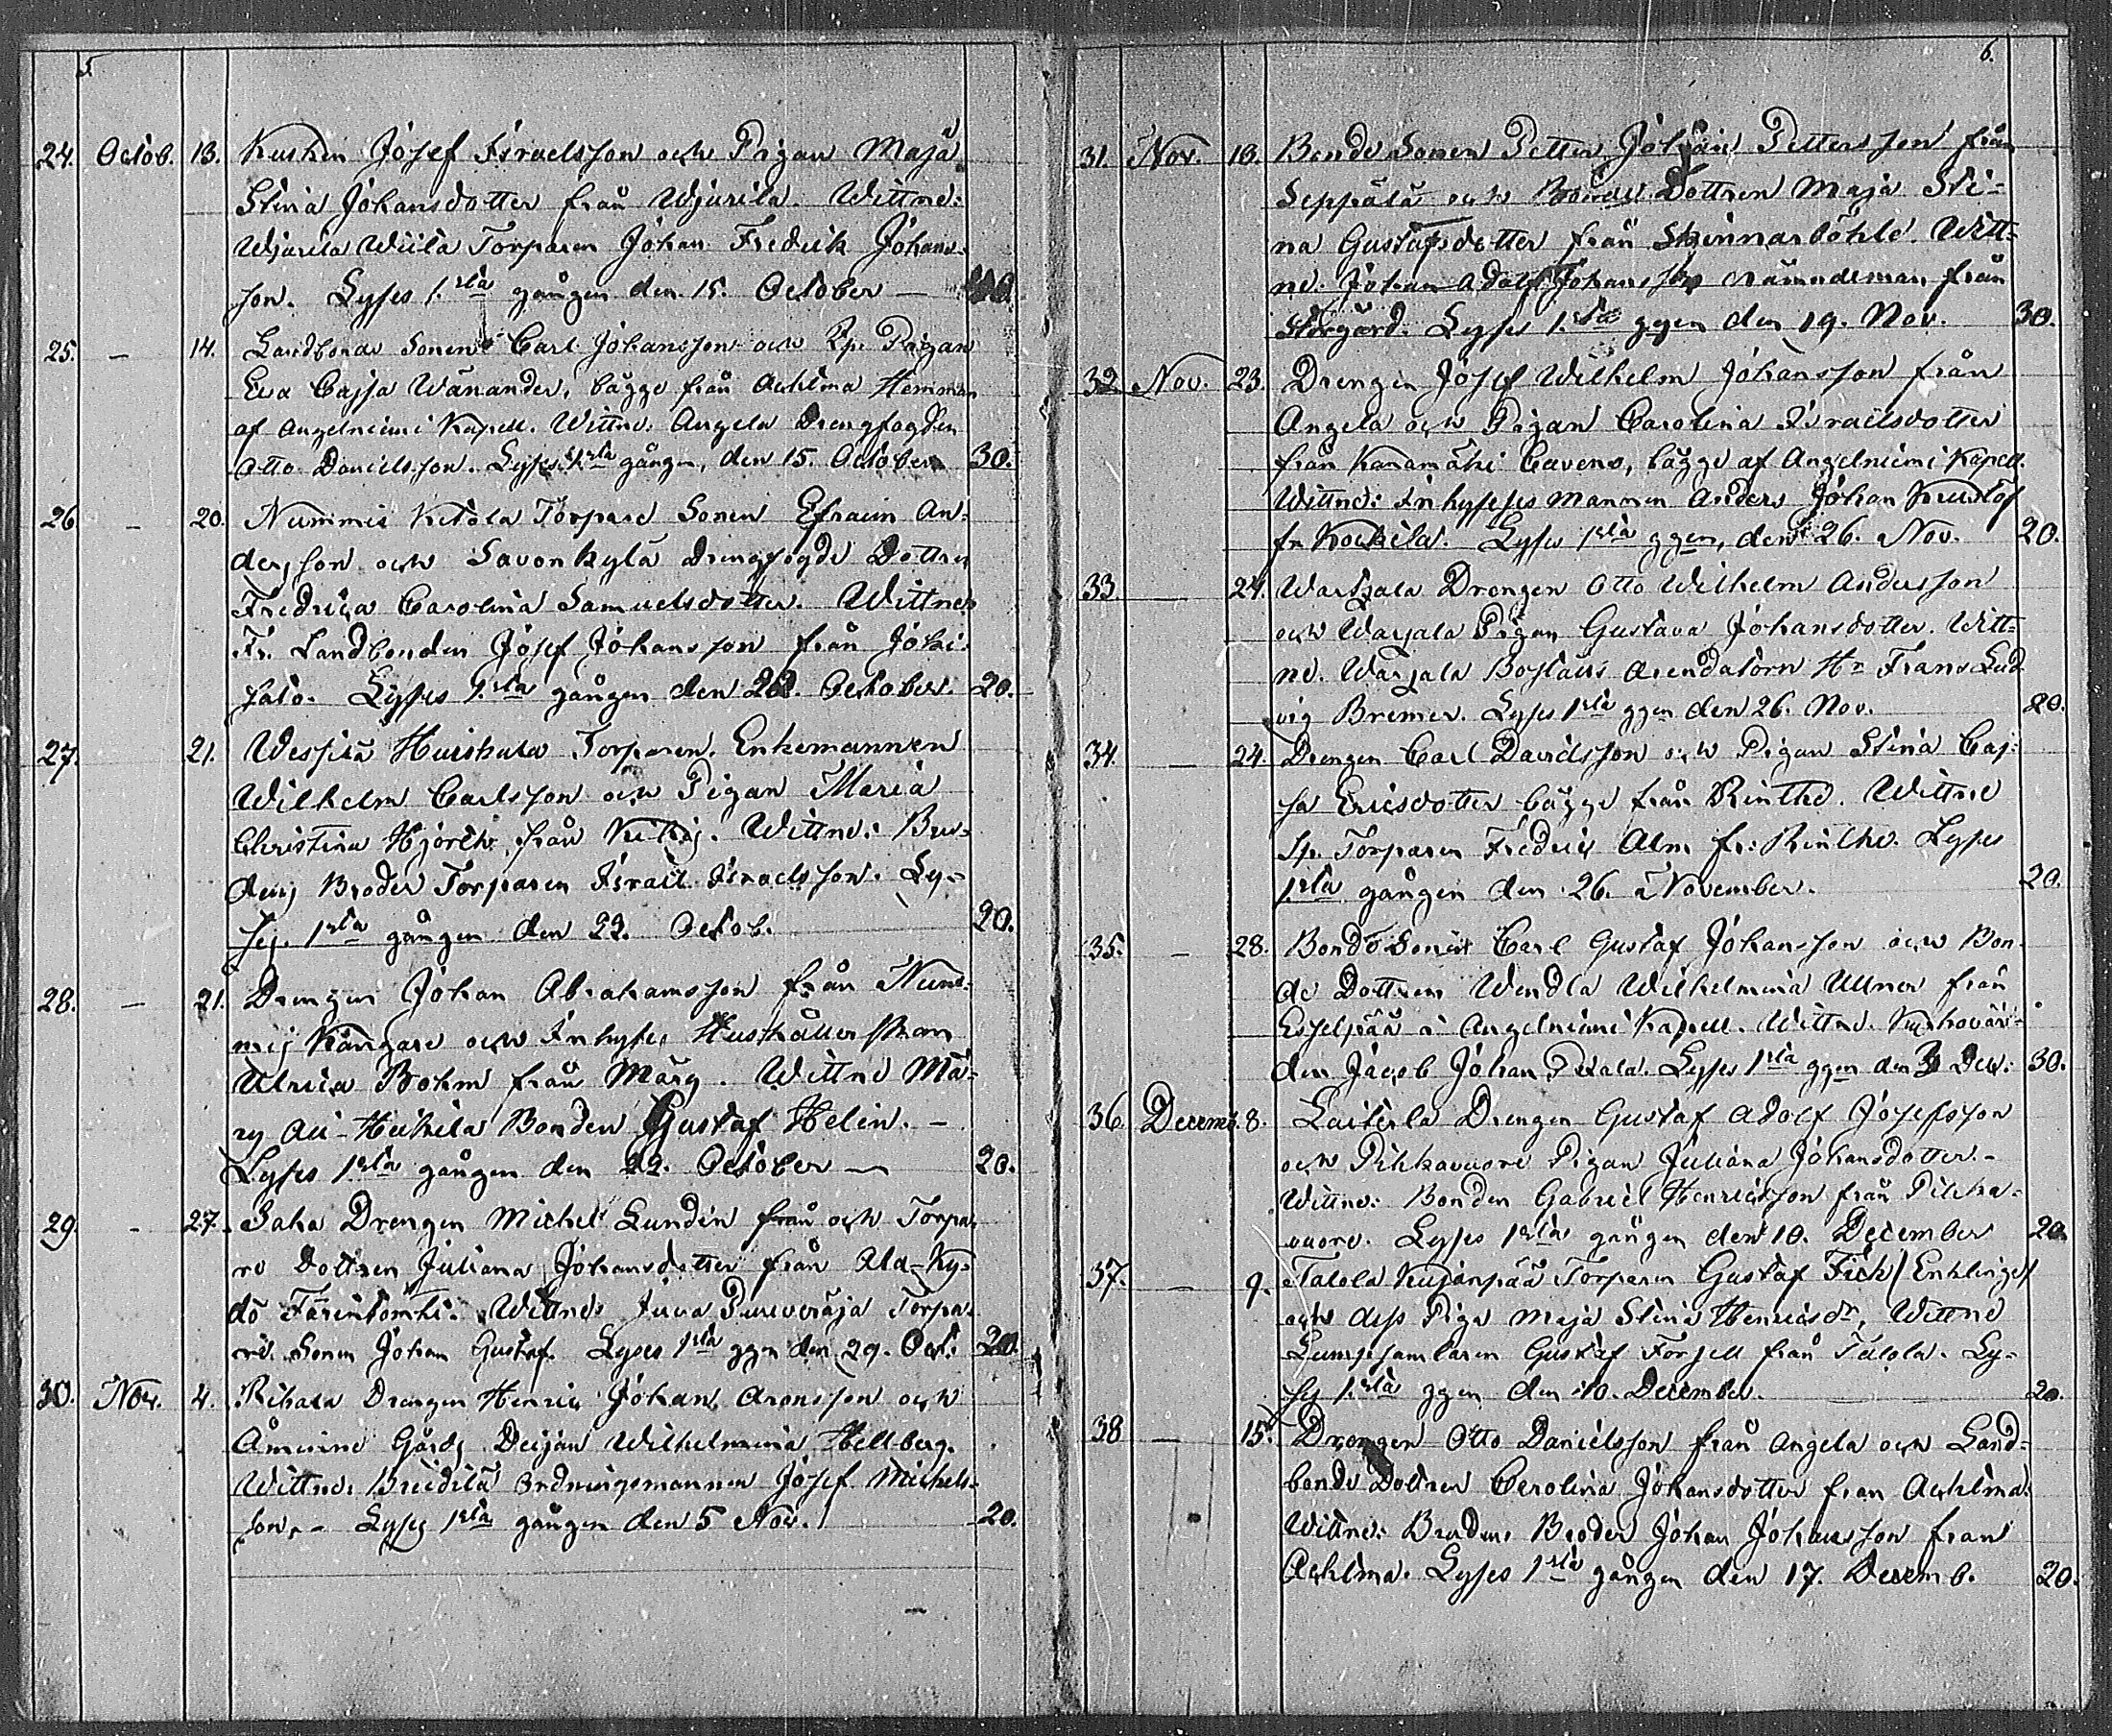 5.
24. Octob. 13. Kusken Josef Israelsson och Pigan Maja
Stina Johansdotter från Wjurila. Wittne:
Wjurila Wiila Torparen Johan Fredrik Johans-
son. Lyses 1.sta gången den 15. October —
25. — 14. Landbonde Sonen Carl Johansson och Pigan
Eva Cajsa Wänander, bägge från Achima Hemman
af Angelniemi Kapell. Wittne: Angela Drengfogden
Otto Danielsson. Lyses 1sta gången, den 15. October 30.
26 - 20. Nummis Ketola Torpare Sonen Efraim An-
dersson och Savonkylä Drengfogde Dottren
Fredrica Carolina Samuelsdotter. Wittne:
Fr. Landbonden Josef Johansson från Joki-
salo. Lyses 1.sta gången den 22. October. 20.
27. 21. Torparen, Enkemannen
Wilhelm Carlsson och Pigan Maria
Christina Hjorth från Wittne: Bru-
dens Broder Torparen Israel Israelsson. Ly-
ses. 1sta gången den 22. Octob. 20.
28. — 21. Drengen Johan Abrahamsson från Num-
mis Kangare och Inhyses Hushållerskan
Ulrica Bohm från Märy. Wittne Mä-
ry Ali-Heikilä Bonden Gustaf Helin. —
Lyses 1sta gången den 22. October — 20.
29. - 27. Saha Drengen Michel Lundén från och Torpa-
re Dottren Juliana Johansdotter från Ala-Ky-
dö Wittne: Torpa-
re Sonen Johan Gustaf. Lyses 1sta ggn den 29. Oct. 20.
30. Nov. 4. Rihala Drengen Henric Johan Aronsson och
Åminne Gårds Dejan Wilhelmina Hellberg.
Wittne: Ordningsmannen Josef Michels-
son. - Lyses 1sta gången den 5 Nov. 20.
6.
31. Nov. 13. Bonde Sonen Petter Johan Pettersson från
Seppälä och Bonde Dottren Maja Sti-
na Gustafsdotter från Skinnarböhle. Witt-
ne: Johan Adolf Johansson Nämndeman från
Storgård. Lyses 1.sta ggen den 19. Nov. 30.
32 Nov. 23. Drengen Josef Wilhelm Johansson från
Angela och Pigan Carolina Israelsdotter
från Kanamäki Cavens, bägge af Angelniemi Kapell.
Wittne: Inhysses mannen Anders Johan
fr. Kockila. Lyses 1sta ggen, den 26. Nov. 20.
33 — 24. Wartsala Drengen Otto Wilhelm Andersson
och Pigan Gustava Johansdotter. Witt-
ne. Boställs Arendatorn Hr Frans Lud-
vig Bremer. Lyses 1sta ggen den 26. Nov. 20.
34. — 24. Drengen Carl Davidsson och Pigan Stina Caj-
sa Ericsdotter bägge från Rinthe. Wittne
Sp. Torparen Fredric Alm fr. Rinthe. Lyses
1.sta gången den 26. November. 20.
35. - 28. Bonde Sonen Carl Gustaf Johansson och Bon-
de Dottren Wendla Wilhelmina Ullner från
Esselpää i Angelniemi Kapell. Wittne. Kyrkovär-
den Jacob Johan Lyses 1sta ggen den 3 Dec. 30.
36 Decemb. 8. Laiterla Drengen Gustaf Adolf Josefsson
och Pihkavuori Pigan Juliana Johansdotter. -
Wittne: Bonden Gabriel Henricsson från Pihka-
vuore. Lyses 1sta gången den 10. December 20.
37. — 9. Talola Kujanpää Torparen Gustaf Fick (Enkling)
och dess Piga Maja Stina Henricsdr, Wittne
Lumpsamlaren Gustaf Forsell från Talola. Ly-
ses 1.sta ggen den 10. December. 20.
38 — 15. Drengen Otto Danielsson från Angela och Land-
bonde Dottren Carolina Johansdotter från Achima.
Wittne: Brudens Broder Johan Johansson från
Achima. Lyses 1sta gången den 17. Decemb. 20.